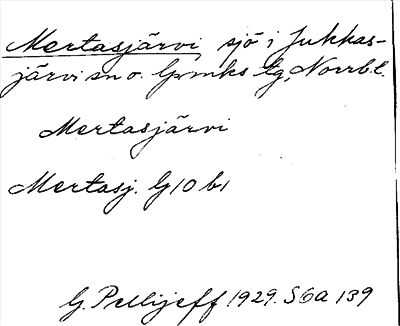 Mertasjärvi, sjö i Jukkas-
järvi sn o. Lpmks tg, Norrb.l.
Mertasjärvi
Mertasj. G10 b1
G. Pellijeff 1929. S6a 139